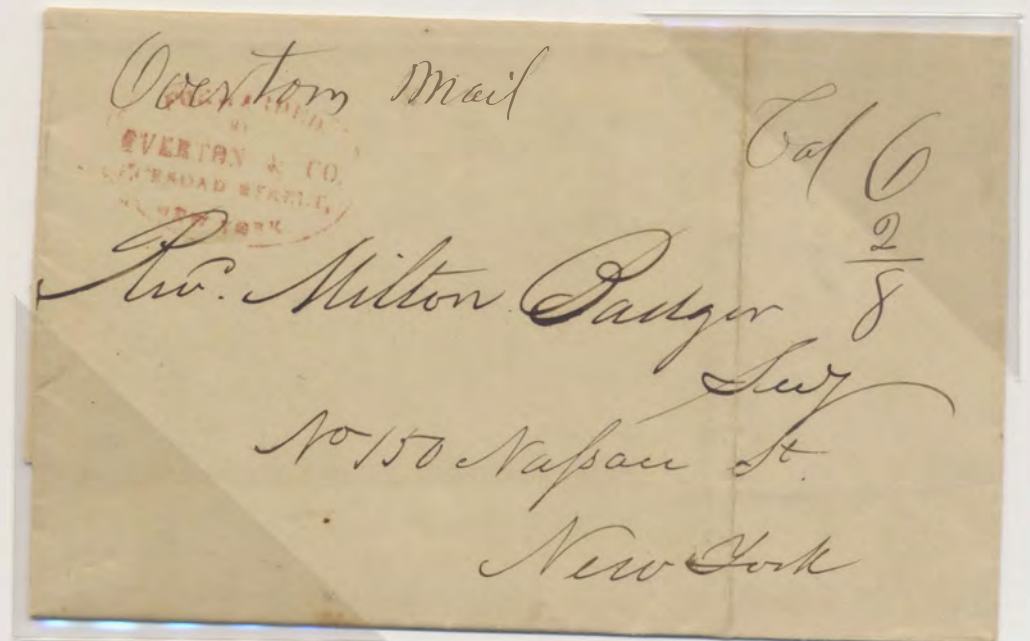 Overtons Mail
FORWARDED
BY
OVERTON & CO.
BROAD STREET,
NEW YORK
Col 6
2
8
Rev. Milton Badger
Secy
No 150 Naſsau St.
New York